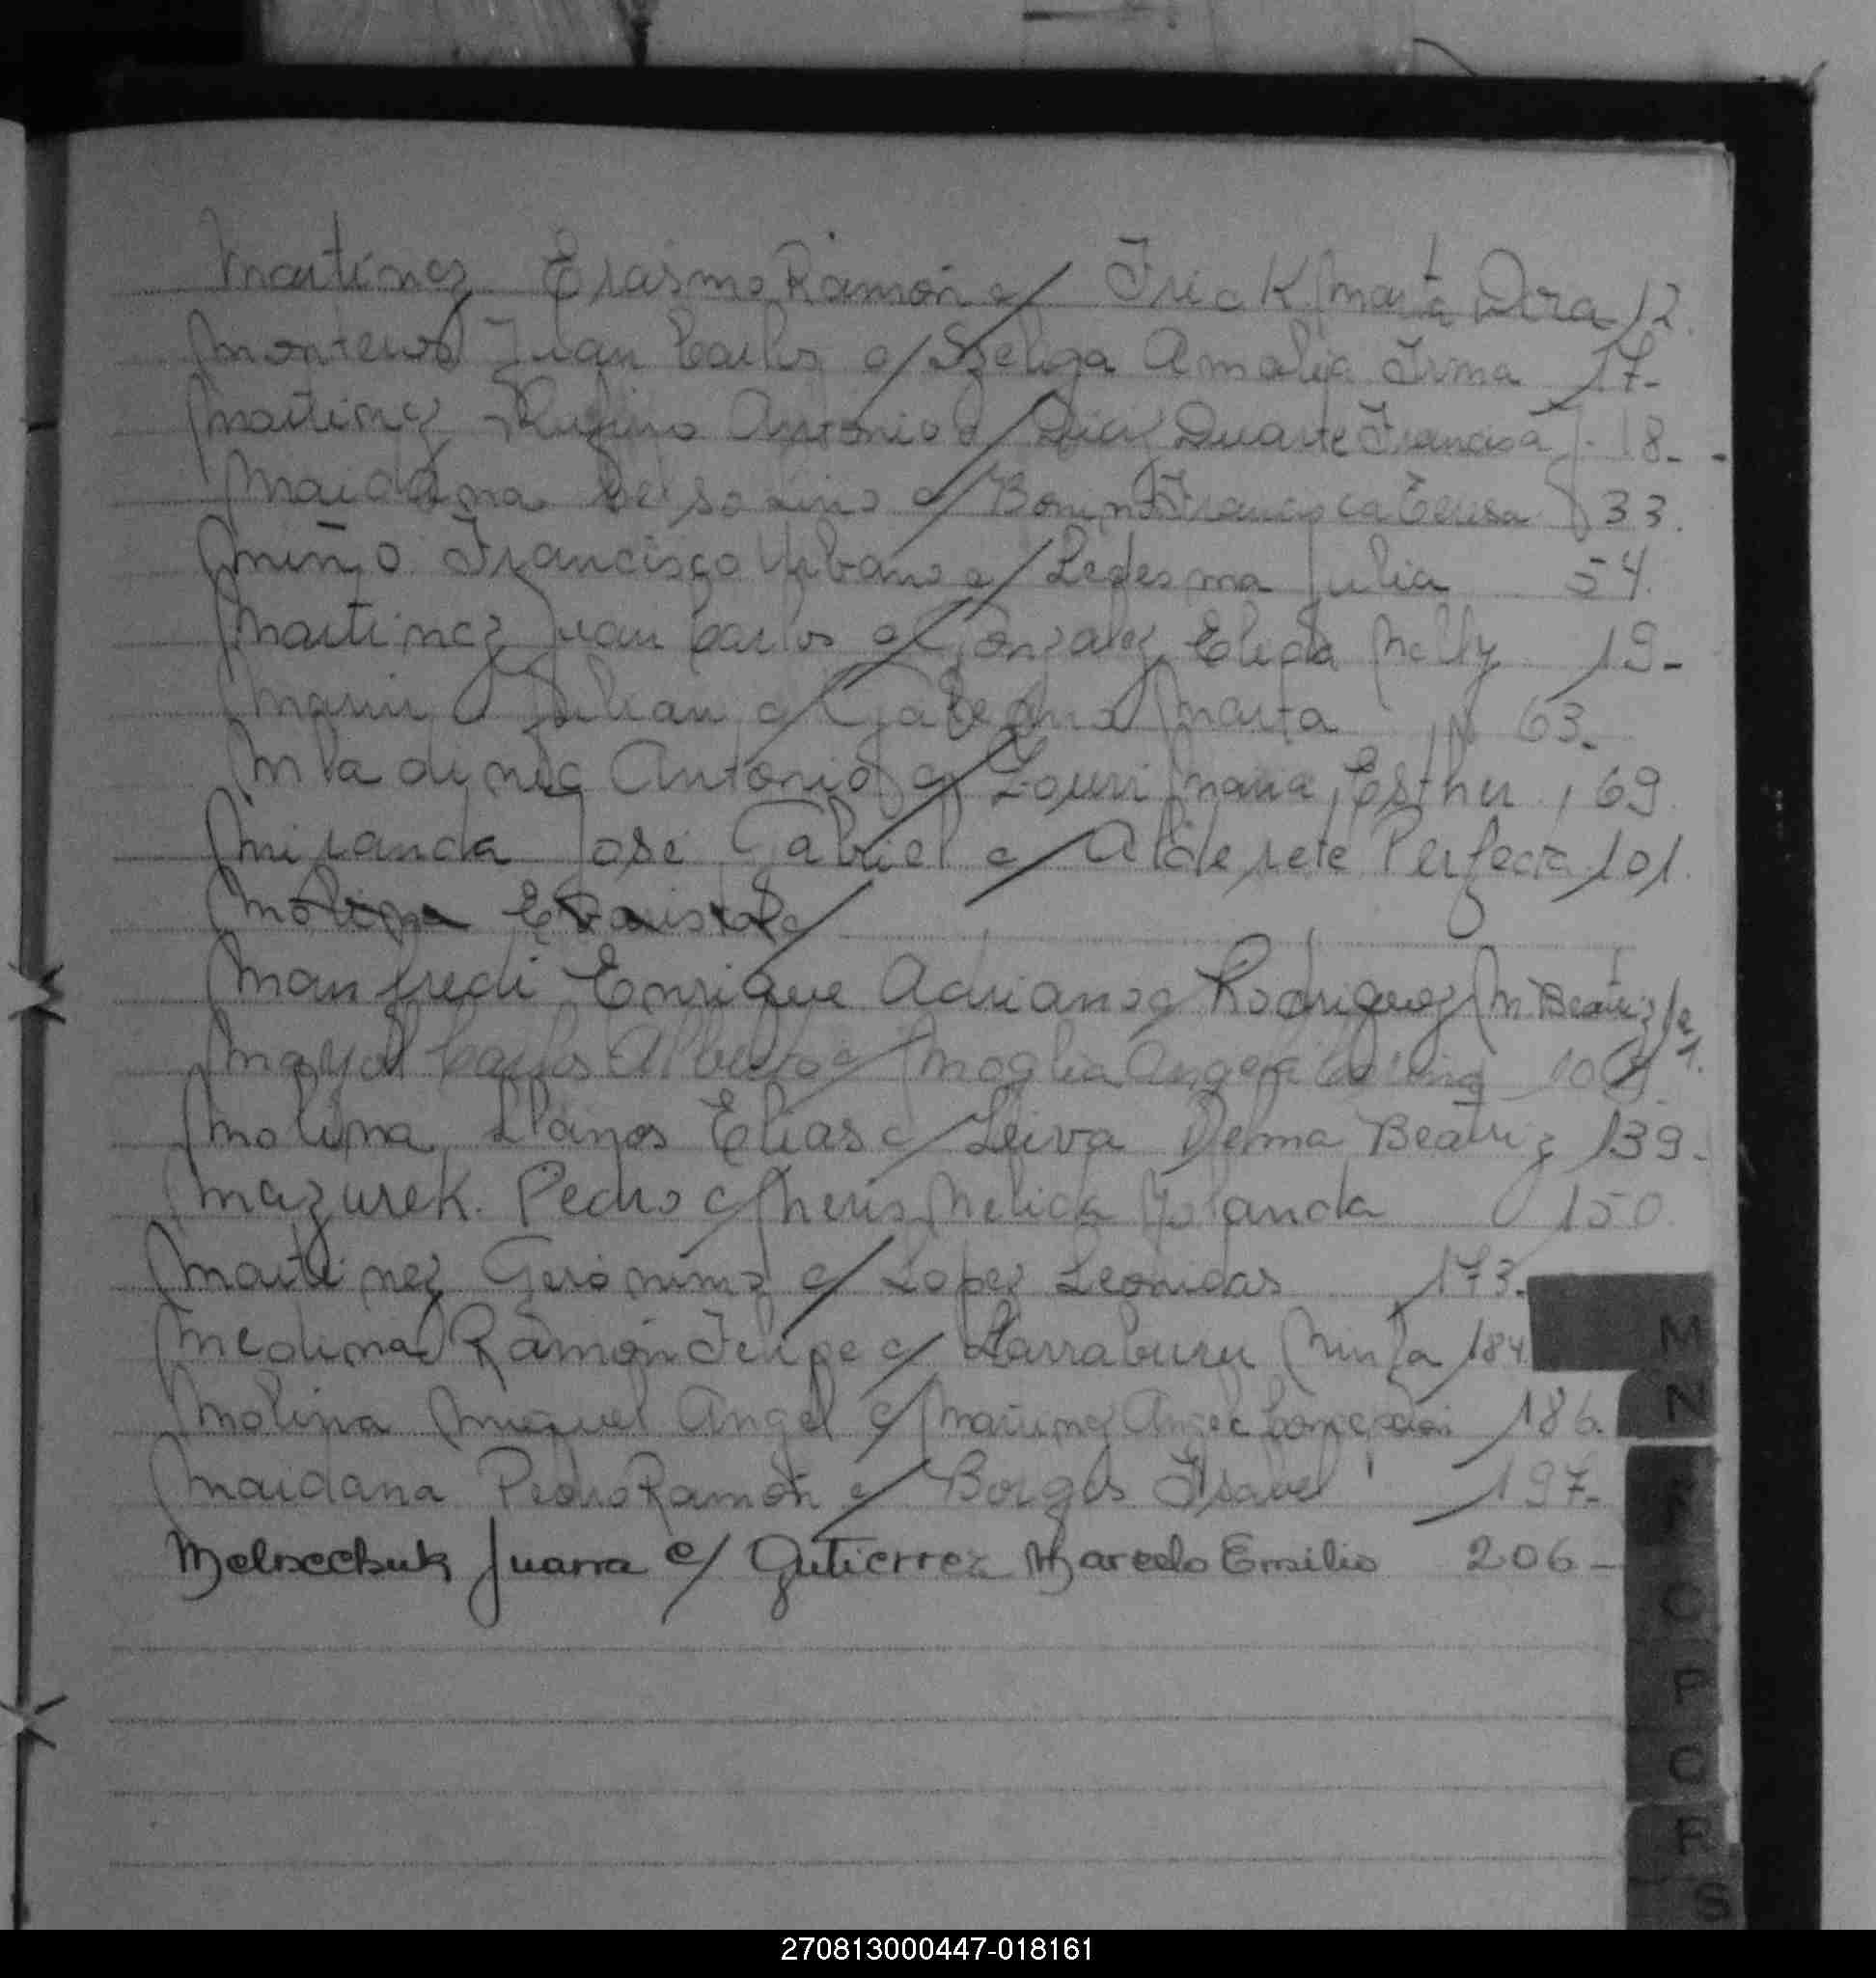 Martinez Erasmo Ramón c/ Frick Marta Dora 12.
Monteros Juan Carlos c/ Szeliga Amalia Irma 17-
Martinez Rufino Antonio c/ Diaz Duarte Francisca 18-
Maidana Celso Lino c/ Francisca Teresa 33.
Miño Francisco Urbano c/ Ledesma Julia 54.
Martinez Juan Carlos c/ Gonzalez Elida Nelly 19-
Marin Julian c/ Galeano Marta 63.
Mladineo Antonio c/ Maria Esther 69.
Miranda José Gabriel c/ Alderete Perfecta 101.
Molina Evaristo c/
Manfredi Enrique Adriano c/ Rodriguez M Beatriz 121.
Mayol Carlos Alberto c/ Moglia Angela
Molina Llanos Elias c/ Leiva Delma Beatriz 139.
Mazurek Pedro c/ Nelida Yolanda 150.
Martinez Gerónimo c/ Lopez Leonidas 173.
Medina Ramón Felipe c/ Larraburu Ninfa 184.
Molina Miguel Angel c/ Martinez Angela Concepción 186.
Maidana Pedro Ramón c/ Borges Isabel 197.
Juana c/ Gutierrez Marcelo Emilio 206-
M
N
O
P
Q
R
S
270813000447-018161